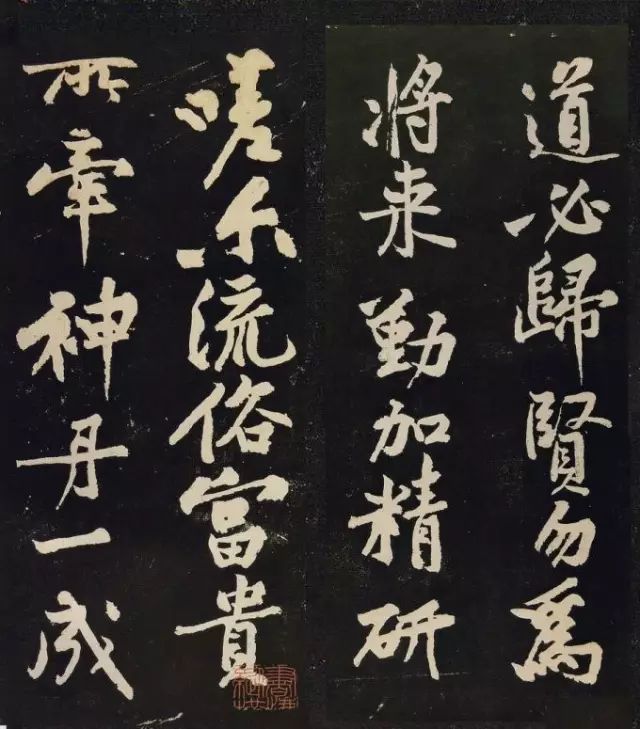 道必歸賢勿爲
將来勤加精研
嗟尓流俗富貴
所牽神丹一成